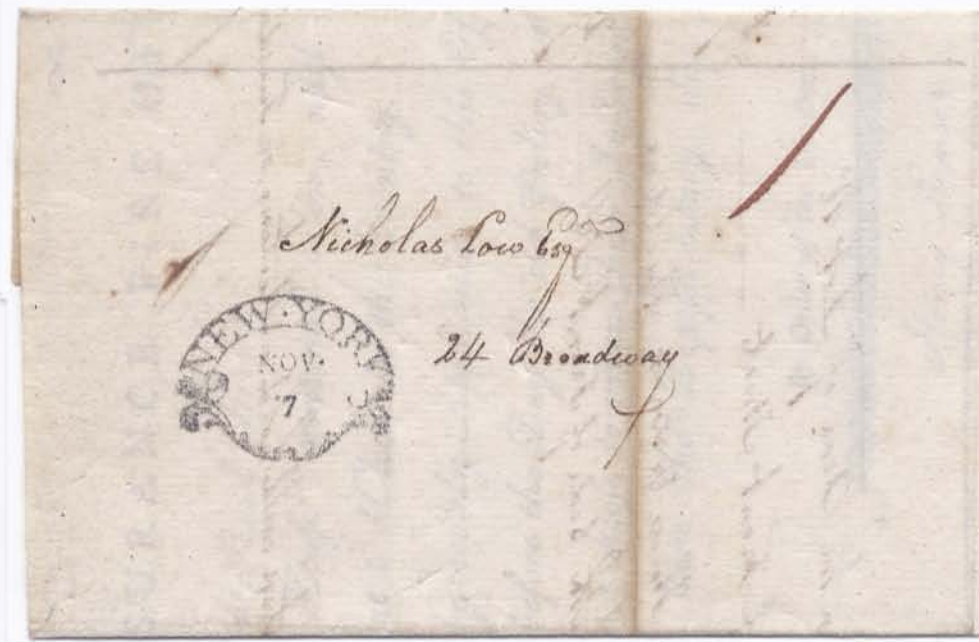 Nicholas Low Esqr
24 Broadway
NEW·YORK
NOV.
7